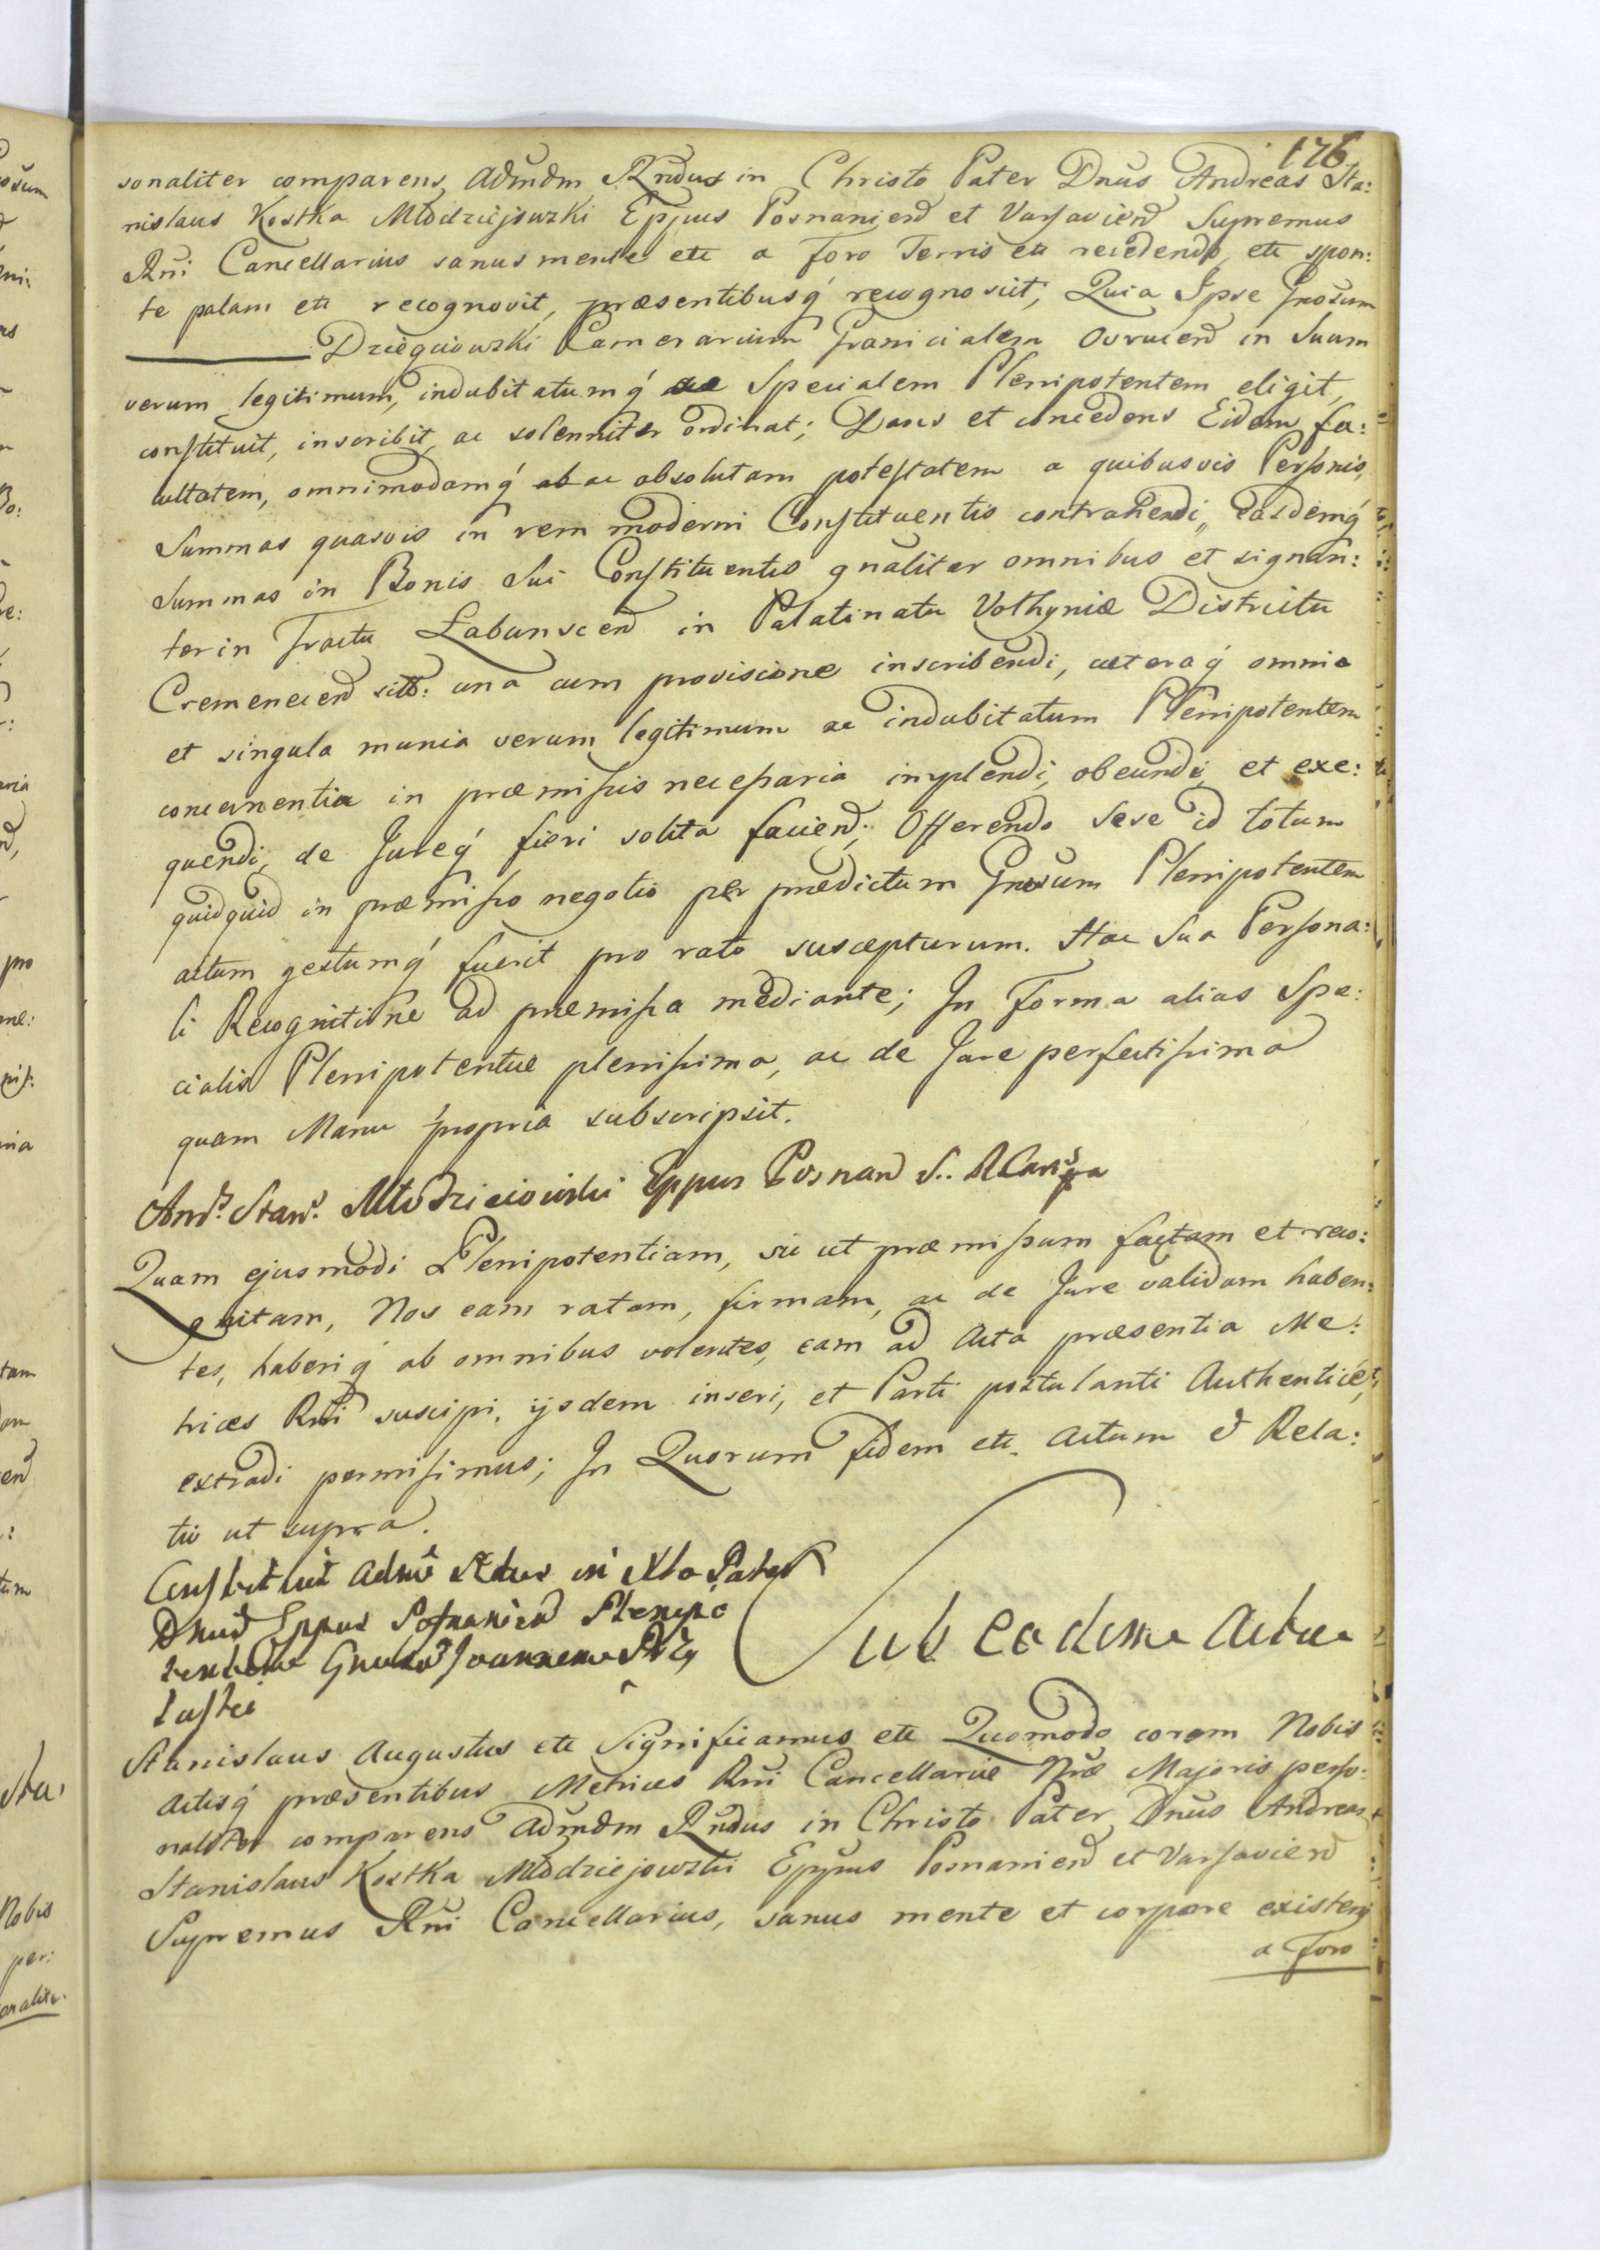 176
sonaliter comparens Admdm Rndus in Christo Pater Dnus Andreas Sta:
nislaus Kostka Młodziejowski Eppus Posnanien et Varsavien Supremus
Rni Cancellarius sanus mente etc a Foro Terris etc recedendo etc spon:
te palam etc recognovit, præsentibusq́ recognoscit; Quia Ipse Gnosum
Dzięgciowski Camerarium Granicialem Ovrucien in Suum
verum legitimum, indubitatumq́ ac Specialem Plenipotentem eligit,
constituit, inscribit, ac solenniter ordinat; Dans et concedens Eidem fa:
cultatem, omnimodamq́ ab ac absolutam potestatem a quibusvis Personis,
Summas quasvis in rem moderni Constituentis contrahendi, easdemq́
Summas in Bonis Sui Constituentis gnaliter omnibus et signan:
ter in Tractu Łabunscen in Palatinatu Volhyniæ Districtu
Cremenecen sitt: una cum provisione inscribendi, cæteraq́ omnia
et singula munia verum legitimum ac indubitatum Plenipotentem
concernentia in præmissis necessaria implendi, obeundi, et exe:
quendi, de Jureq́ fieri solita faciend; Offerendo sese id totum
quidquid in præmisso negotio per prædictum Gnosum Plenipotentem
actum gestumq́ fuerit pro rato suscepturum. Hac Sua Persona:
li Recognitione ad præmissa mediante; In Forma alias Spe:
cialis Plenipotentiæ plenissima, ac de Jure perfectissima
quam Manu propria subscripsit.
Andr. Stan. Młodzieiowski Eppus Posnan S. R Canr
Quam ejusmodi Plenipotentiam, sic ut præmissum factam et reco:
gnitam, Nos eam ratam, firmam, ac de Jure validam haben:
tes, haberiq́ ab omnibus volentes, eam ad Acta præsentia Me:
trices Rni suscipi, ijsdem inseri, et Parti postulanti Authenticé
extradi permisimus; In Quorum fidem etc. Actum et Rela:
tio ut supra.
Constituit Adm Rdus in Xto Pater
Dnus Eppus Posnanien Plenipo
tentem Gnosum Joannem
Sub eodem Actu
Stanislaus Augustus etc Significamus etc Quomodo coram Nobis
Actisq́ præsentibus Metrices Rni Cancellariæ Nræ Majoris perso:
naliter comparens Admdm Rndus in Christo Pater Dnus Andreas
Stanislaus Kostka Młodziejowski Eppus Posnanien et Varsavien
Supremus Rni Cancellarius, sanus mente et corpore existens
a Foro